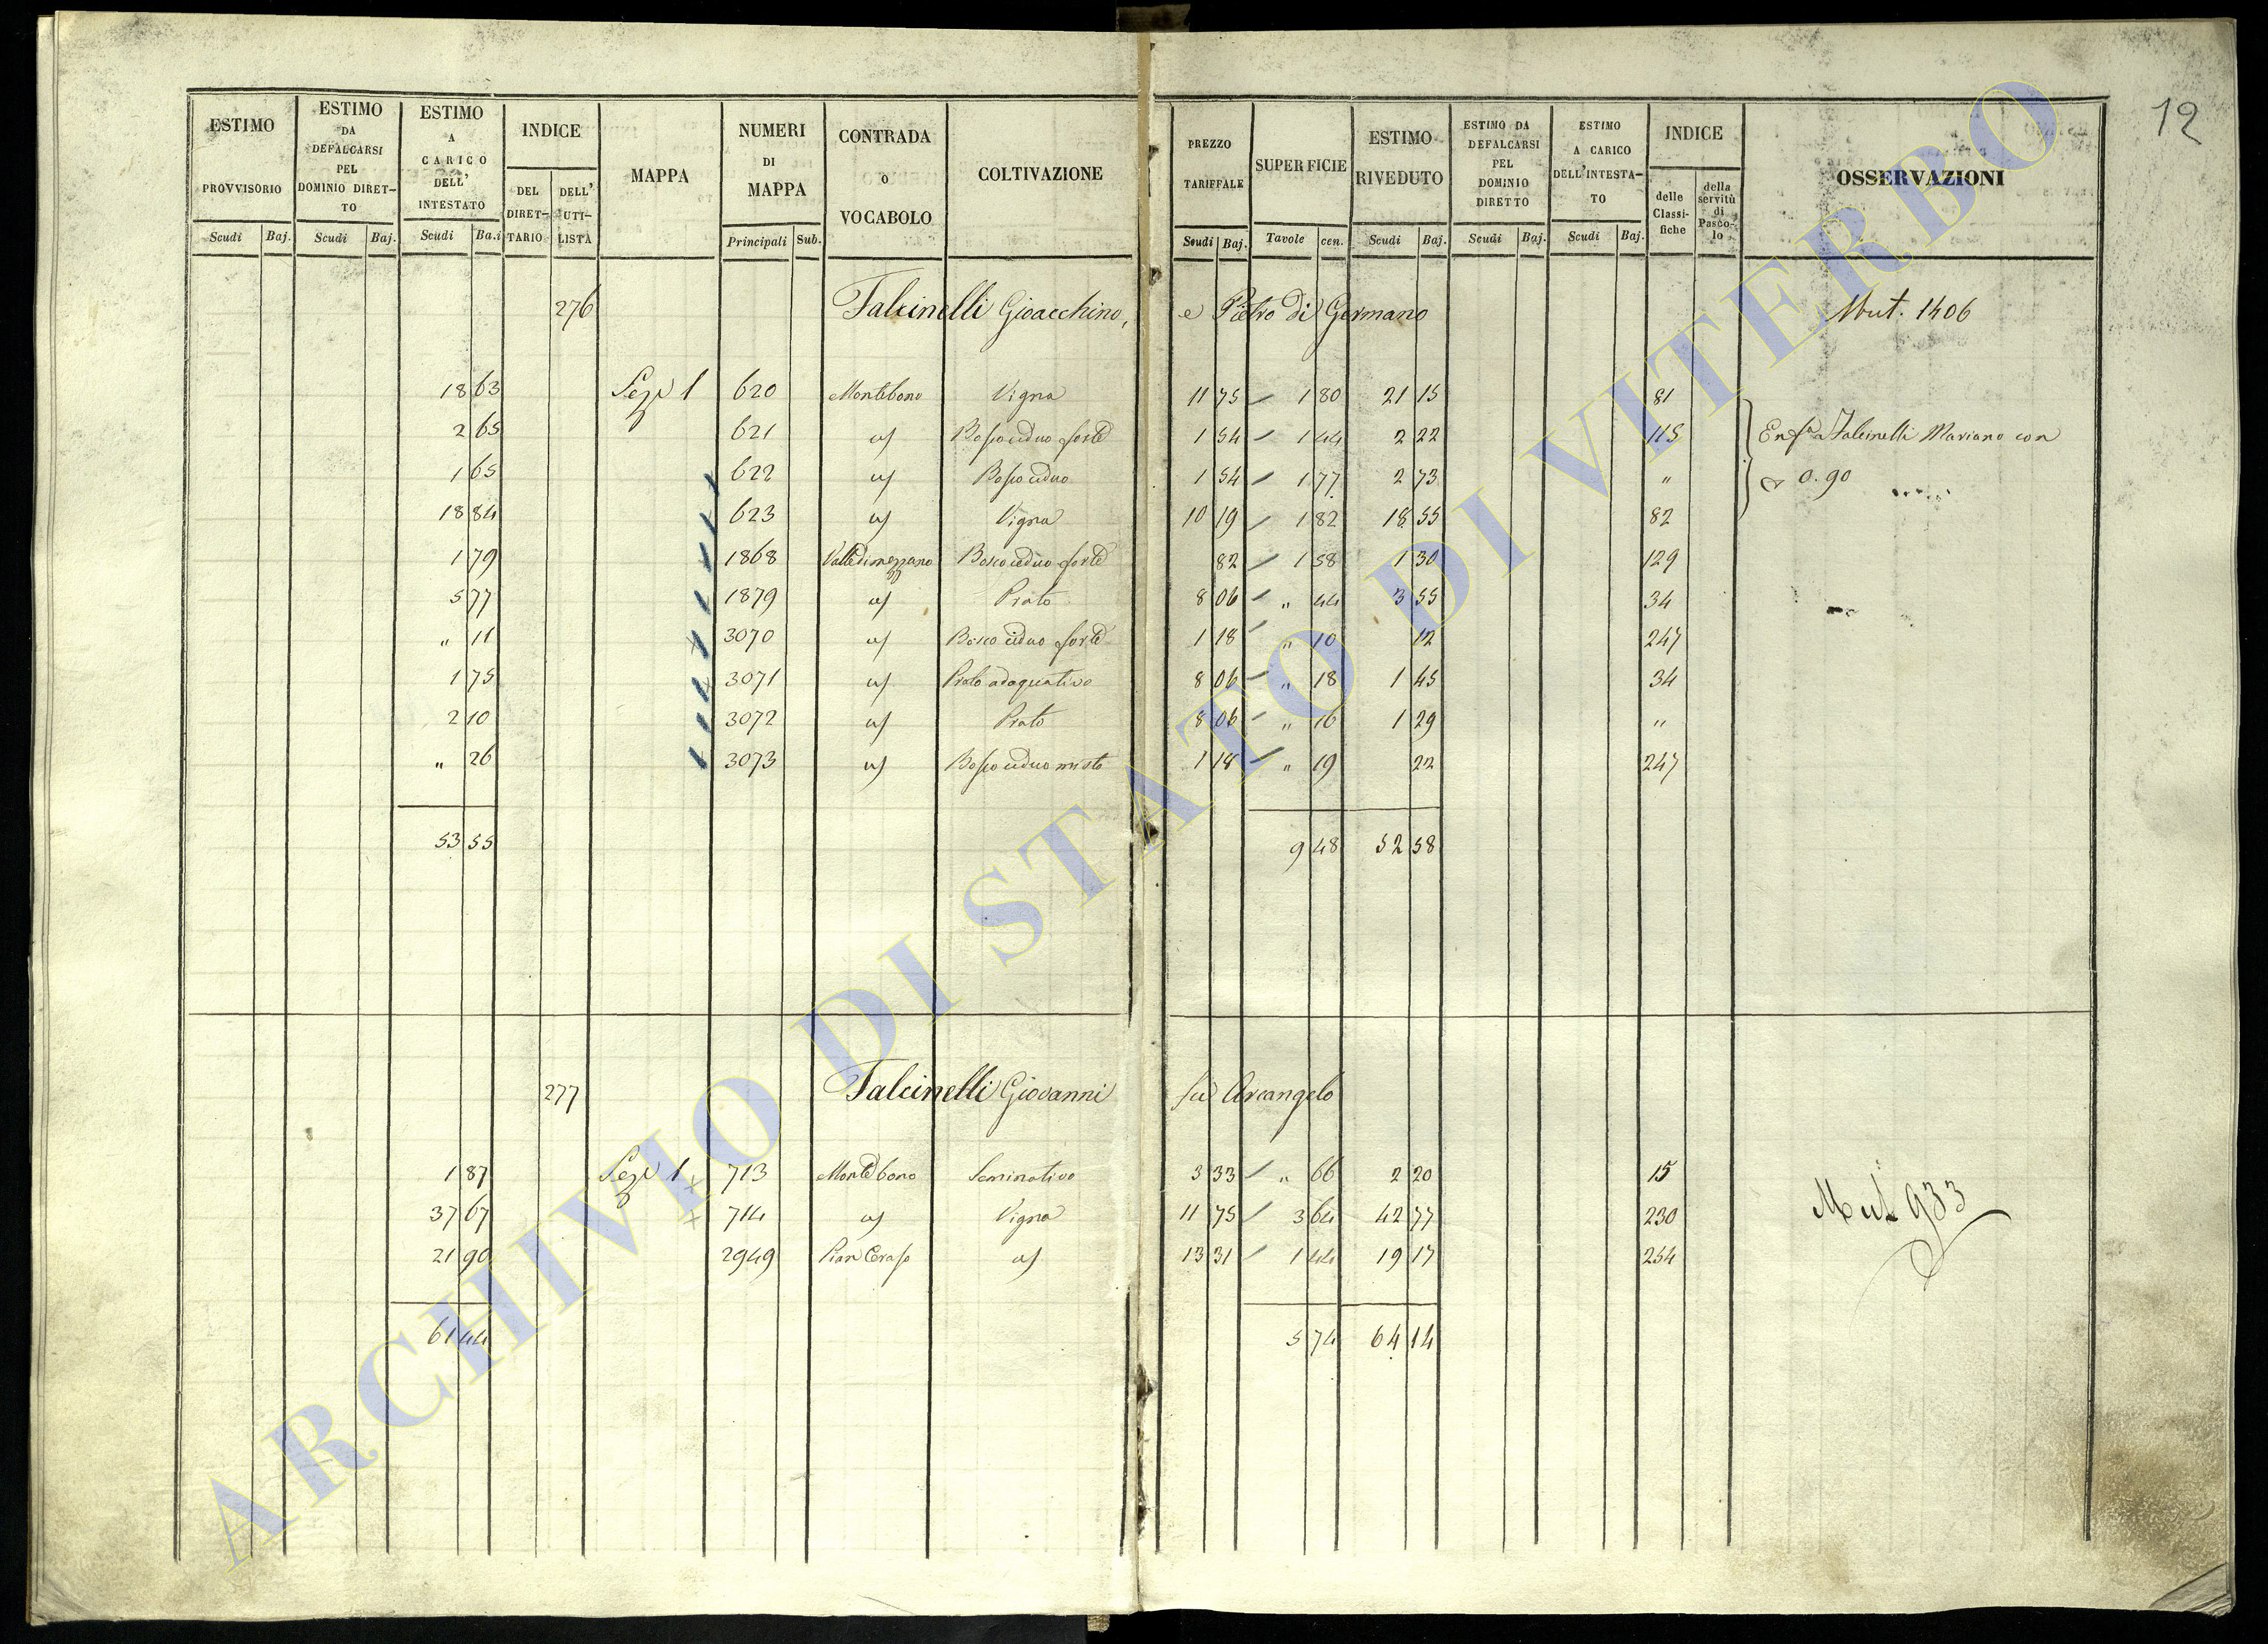 12
ESTIMO PROVVISORIO Scudi Baj. ESTIMO DA DEFALCARSI PEL DOMINIO DIRET-TO Scudi Baj. ESTIMO A CARICO DELL' INTESTATO Scudi Ba.i INDICE DEL DIRET-TARIO DELL' UTI-LISTA MAPPA NUMERI DI MAPPA Principali Sub. CONTRADA o VOCABOLO COLTIVAZIONE PREZZO TARIFFALE Scudi Baj. SUPERFICIE Tavole cen. ESTIMO RIVEDUTO Scudi Baj. ESTIMO DA DEFALCARSI PEL DOMINIO DIRETTO Scudi Baj. ESTIMO A CARICO DELL'INTESTA-TO Scudi Baj. INDICE delle Classi-fiche della servitù di Pasco-lo OSSERVAZIONI
276 Falcinelli Gioacchino, e Pietro di Germano Mut. 1406
18 63 Sez. 1 620 Montebono Vigna 11 75 1 80 21 15 81
2 65 621 Bosco ceduo forte 1 54 1 44 2 22 115 Enf.a Falcinelli Mariano con
1 65 622 Bosco ceduo 1 54 1 77 2 73 " 0.90
18 84 623 Vigna 10 19 1 82 18 55 82
1 79 1868 Valle di mezzano Bosco ceduo forte 82 1 58 1 30 129
5 77 1879 Prato 8 06 " 44 3 55 34
" 11 3070 Bosco ceduo forte 1 18 " 10 12 247
1 75 3071 Prato adaquativo 8 06 " 18 1 45 34
2 10 3072 Prato 8 06 " 16 1 29 "
" 26 3073 Bosco ceduo misto 1 18 " 19 22 247
53 55 9 48 52 58
277 Falcinelli Giovanni fu Arcangelo
1 87 Sez. 1 713 Monte bono Seminativo 3 33 " 66 2 20 15
37 67 714 Vigna 11 75 3 64 42 77 230 Mut 933
21 90 2949 Pian Ceraso 13 31 1 44 19 17 254
61 44 5 74 64 14
ARCHIVIO DI STATO DI VITERBO